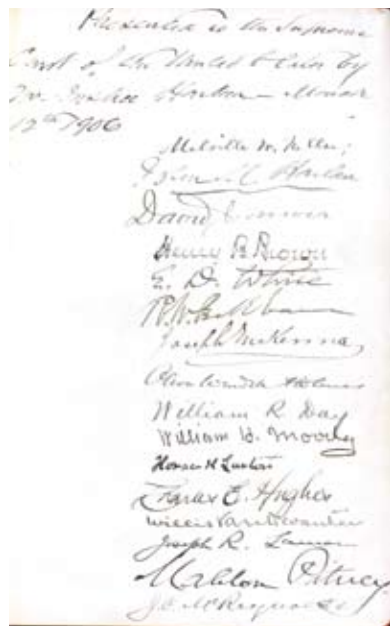 Presented to the Supreme
Court of the United States by
Mr. Justice Harlan — March
12th 1906
Melville W. Fuller,
John M. Harlan
David J. Brewer
Henry B. Brown
E. D. White
R. W. Peckham
Joseph McKenna,
Oliver Wendell Holmes
William R. Day
William H. Moody
Horace H. Lurton
Charles E. Hughes
Willis Van Devanter
Joseph R. Lamar
Mahlon Pitney
J C McReynolds